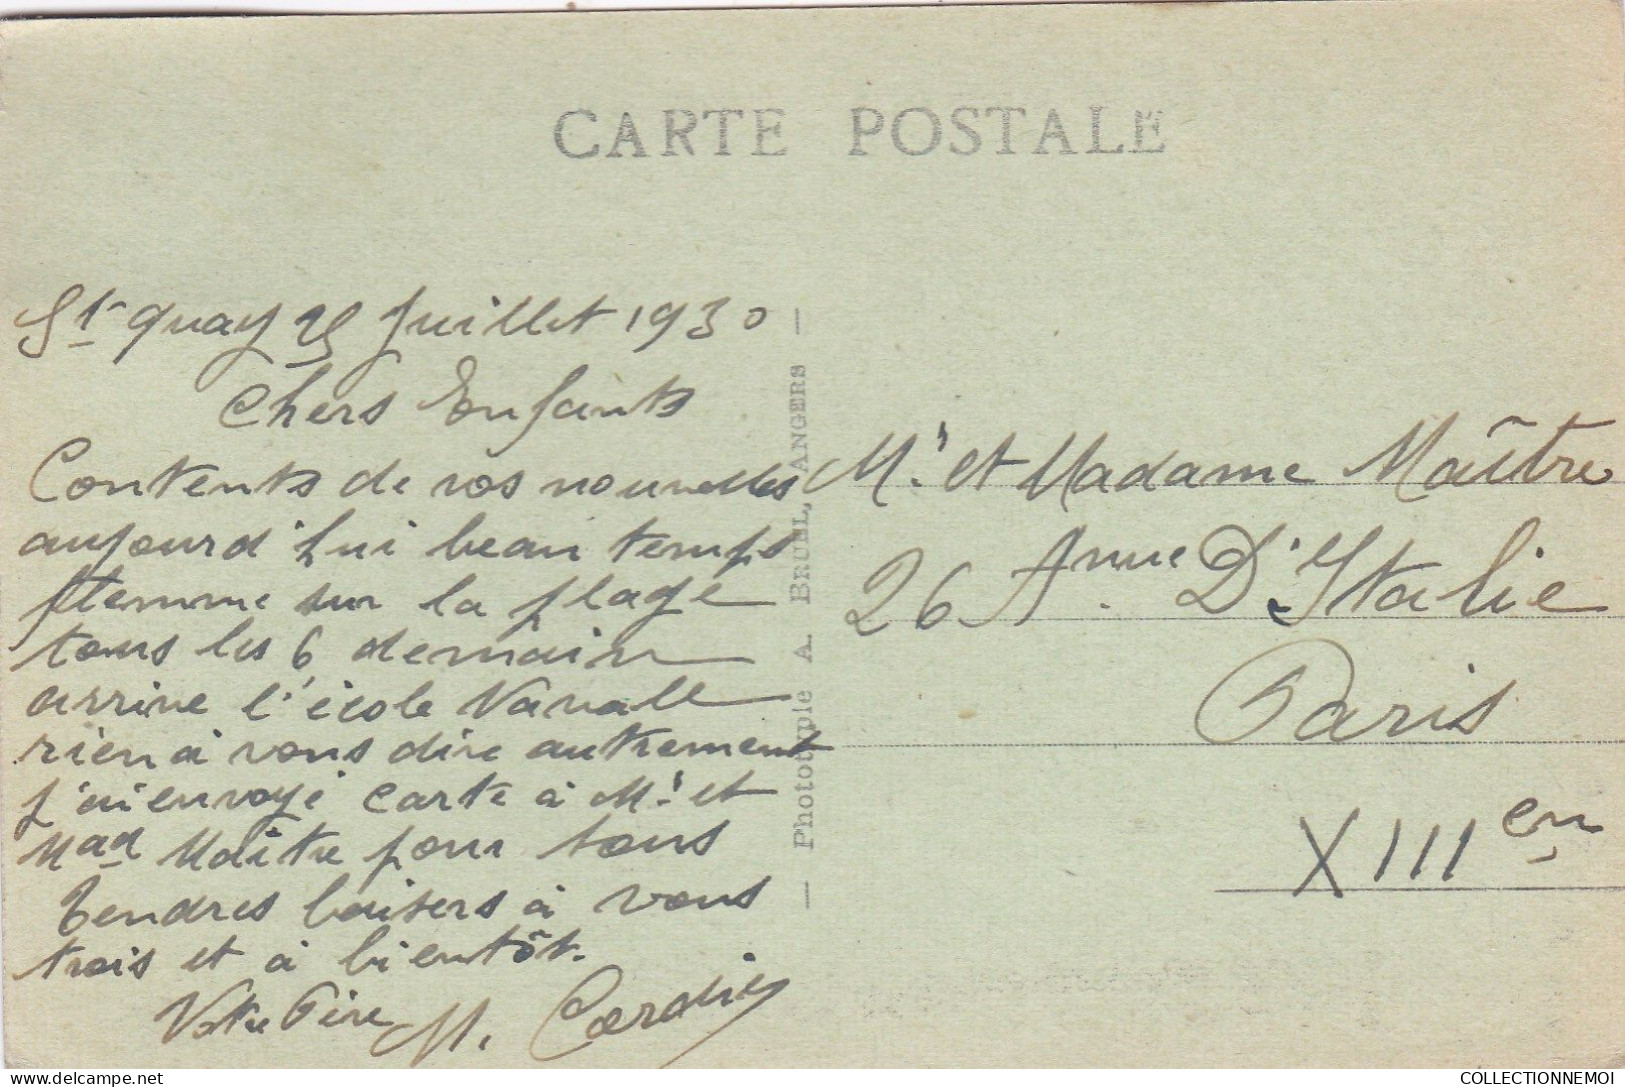 CARTE POSTALE
St quay 25 Juillet 1930
Chers Enfants
Contents de vos nouvelles
aujourd'hui beau temps
femme sur la plage
tous les 6 demain
arrive l'école Navalle
rien à vous dire autrement
j'ai envoyé carte à Mr et
Mad Maître pour tous
tendres baisers à vous
trois et à bientôt.
Votre Père M. Cordier
— Phototypie A. BRUEL, ANGERS —
Mr et Madame Maître
26 Anue D'Italie
Paris
XIII en
COLLECTIONNEMOI